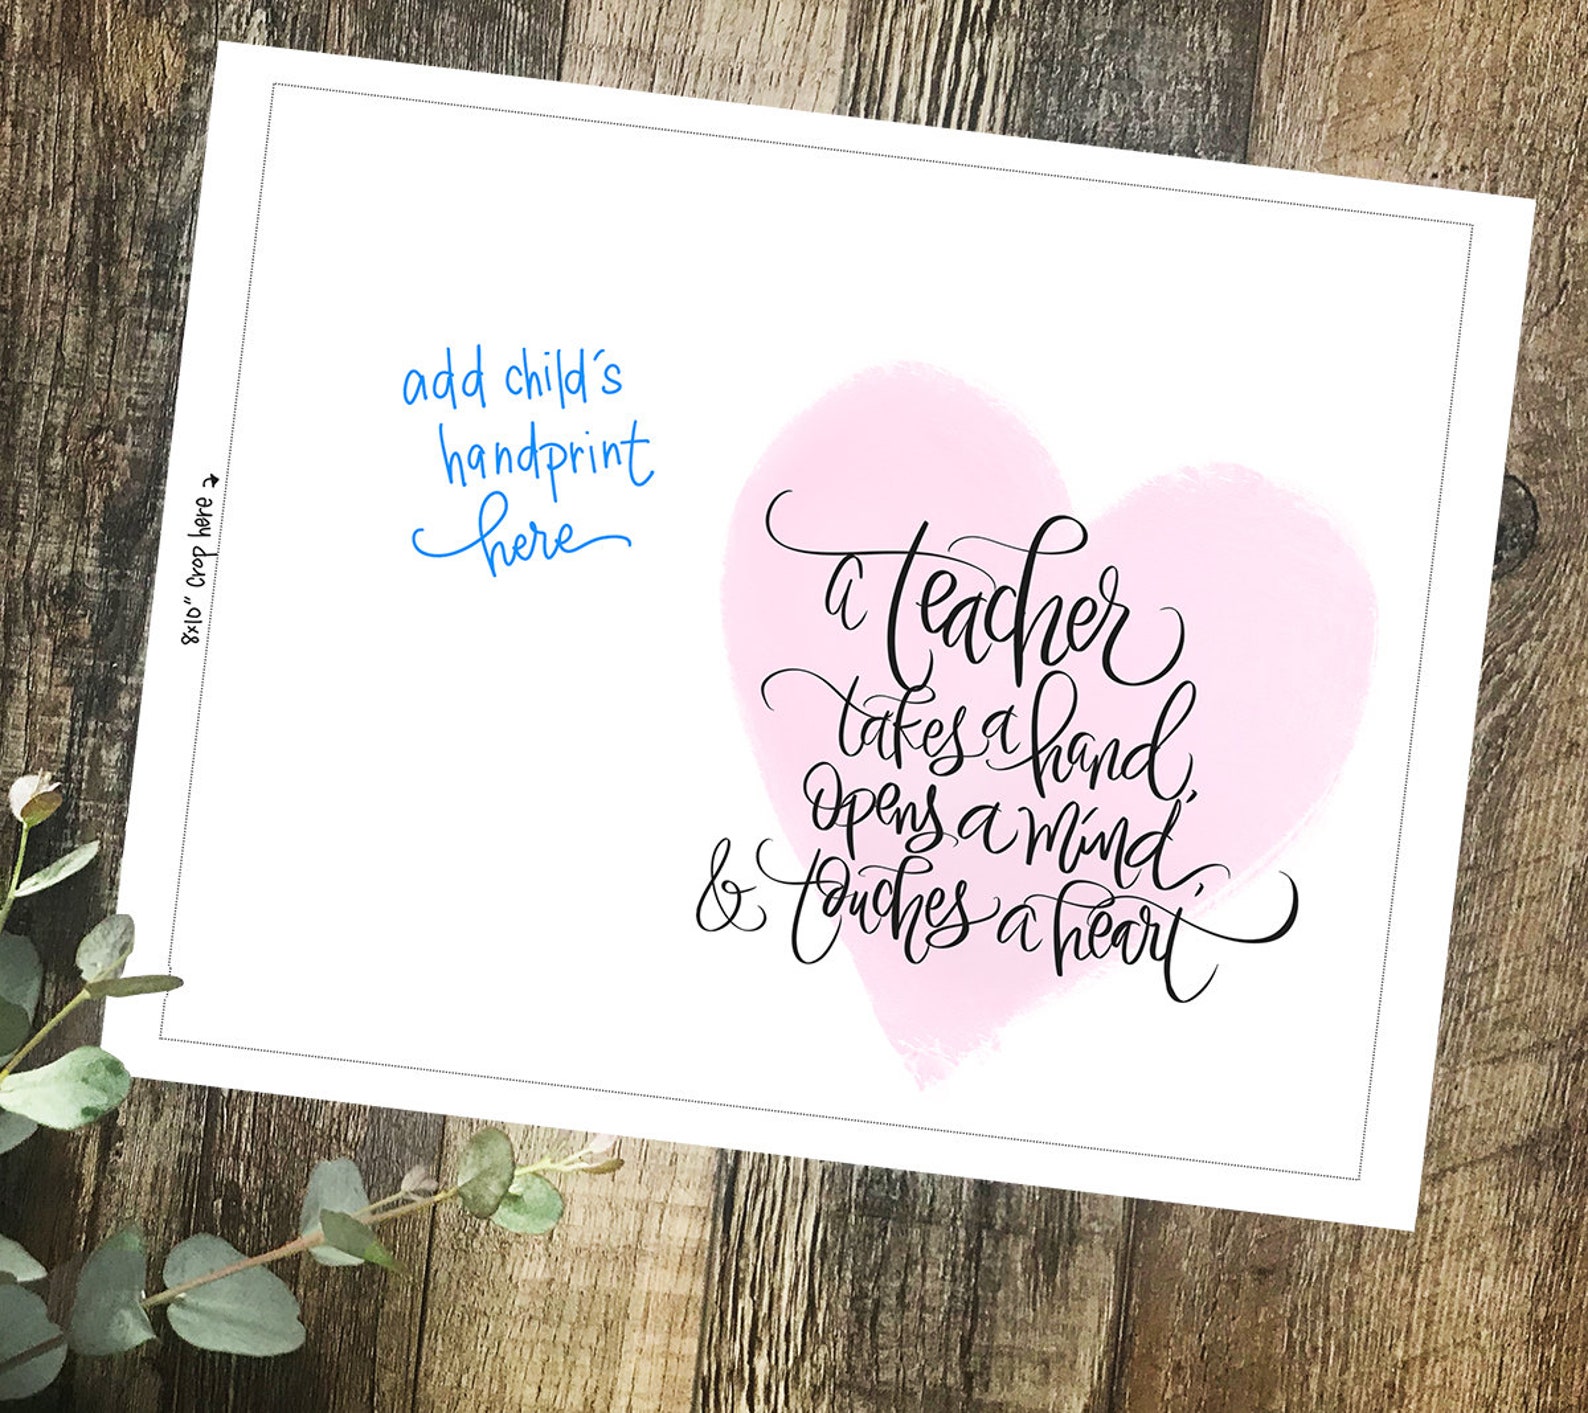 add child's
handprint
here
8x10" crop here
a teacher
takes a hand,
opens a mind,
& touches a heart